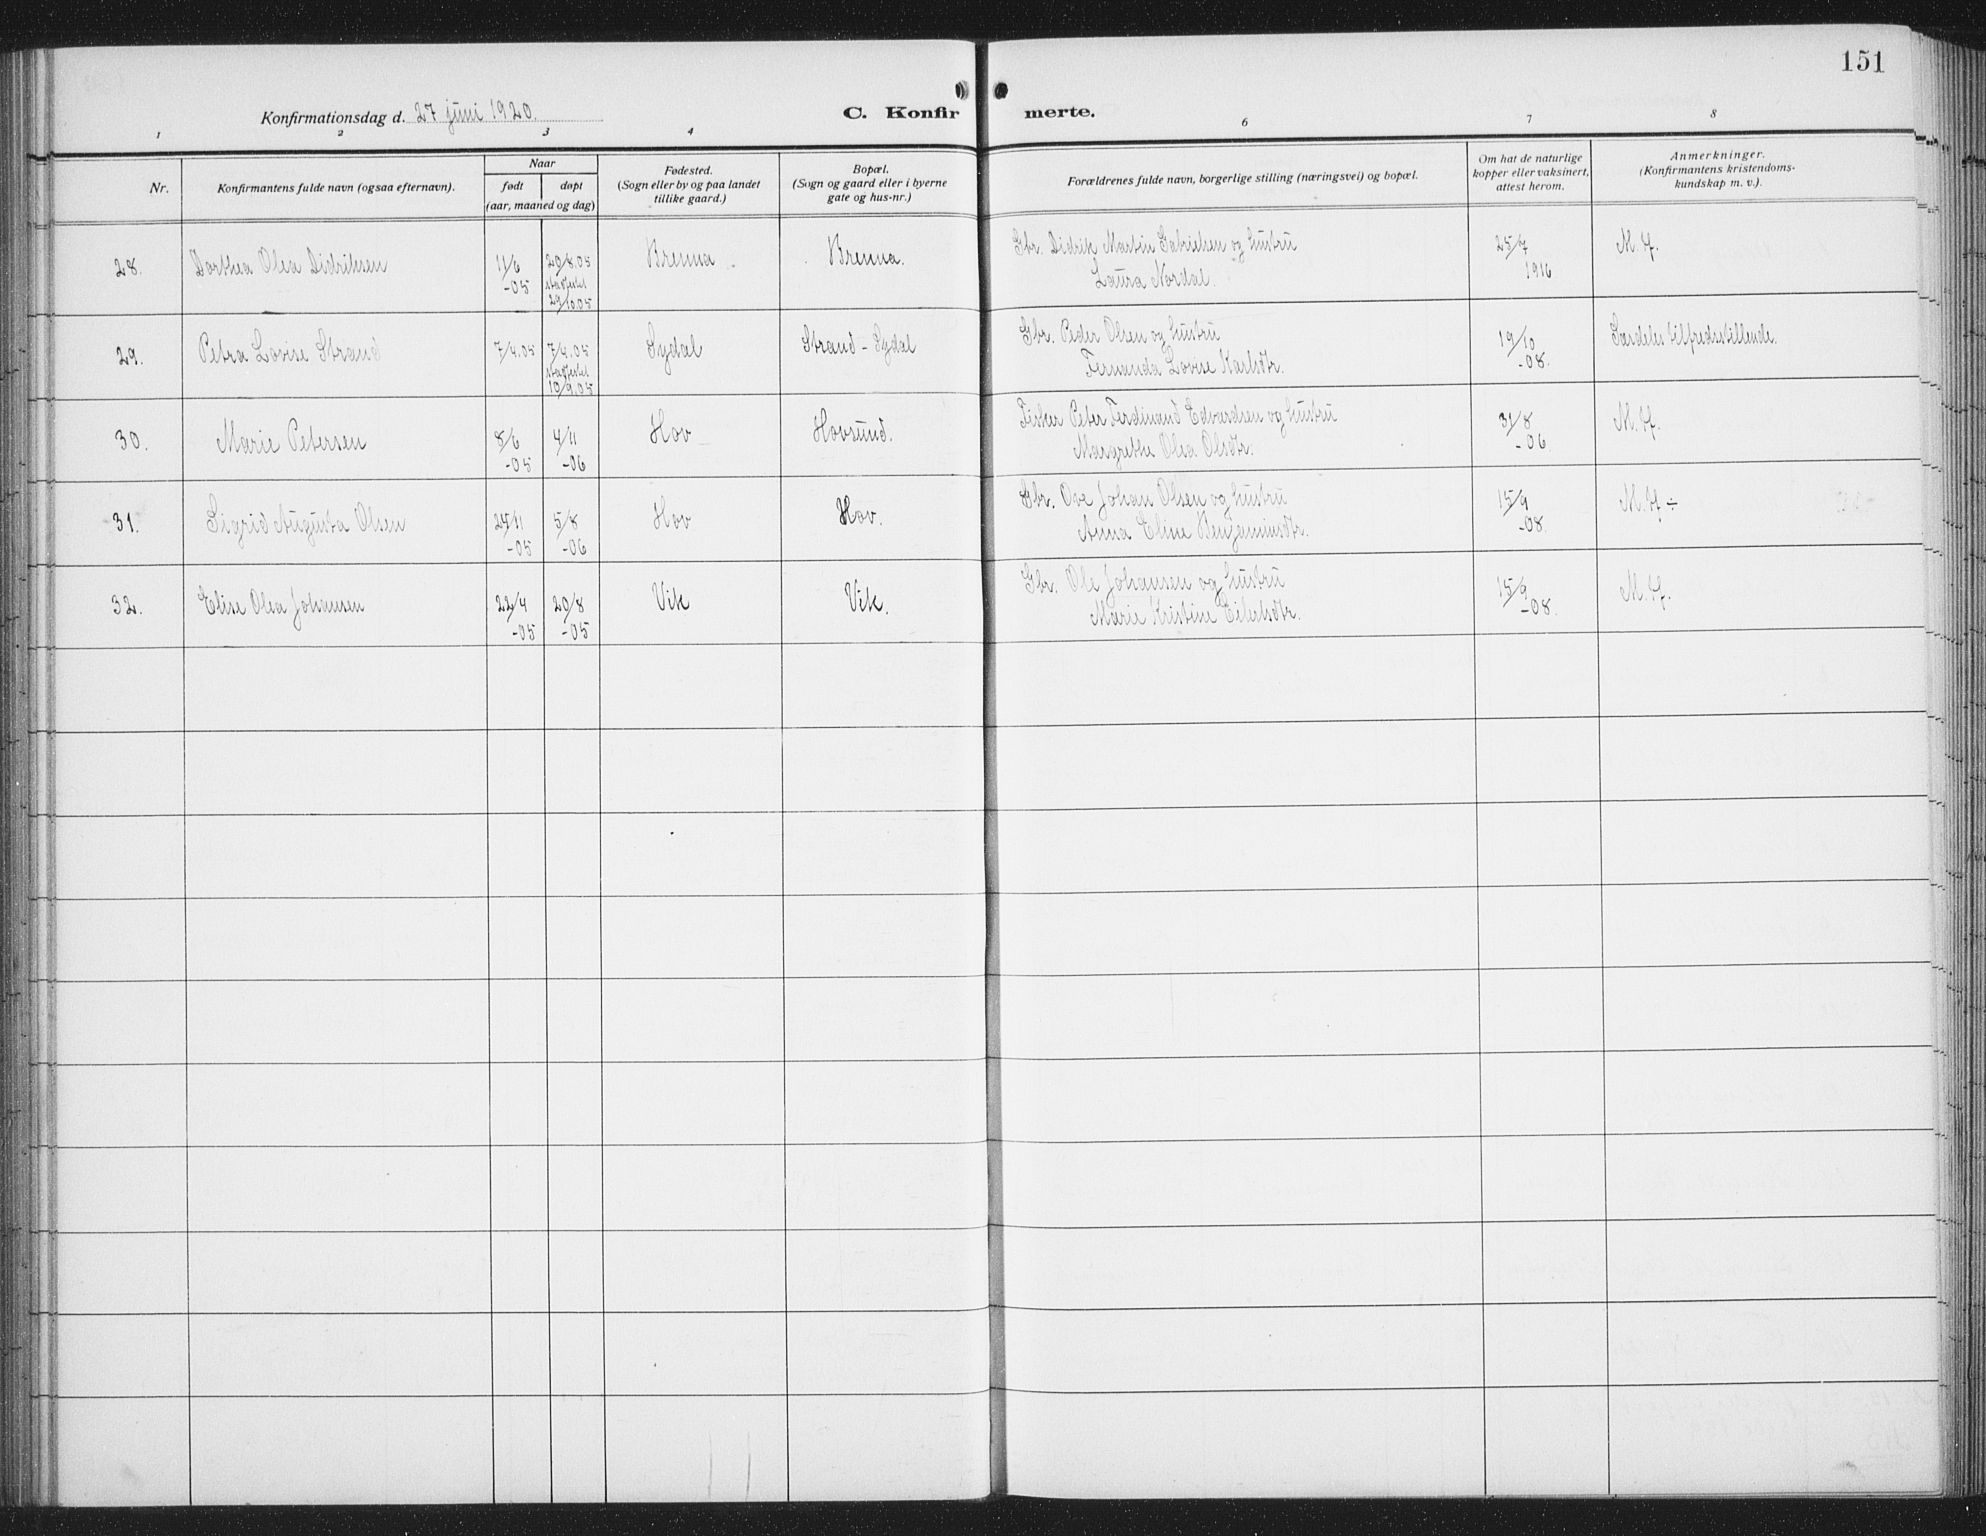 151
Konfirmationsdag d. 27 juni 1920.
C. Konfirmerte.
1 2 3 4 6 7 8
Nr.
Konfirmantens fulde navn (ogsaa efternavn).
Naar
født døpt
(aar, maaned og dag)
Fødested.
(Sogn eller by og paa landet
tillike gaard.)
Bopæl.
(Sogn og gaard eller i byerne
gate og hus-nr.)
Forældrenes fulde navn, borgerlige stilling (næringsvei) og bopæl.
Om hat de naturlige
kopper eller vaksinert,
attest herom.
Anmerkninger.
(Konfirmantens kristendoms-
kundskap m. v.).
28. Dorthea Olea Didriksen 11/6 -05 20/8.05 stadfestet 29/10.05 Brenna Brenna. Gbr. Didrik Martin Gabrielsen og hustru
Laura Nordal. 25/7 1916 M. f.
29. Petra Lovise Strand 7/4.05 7/4.05 stadfestet 10/9.05 Sydal Strand - Sydal Gbr. Peder Olsen og hustru
Fernanda Lovise Karlsdtr. 19/10 -08. Særdeles tilfredsstillende.
30. Marie Petersen 8/6 -05 4/11 -06 Hov Hovsund. Fisker Peter Ferdinand Edvardsen og hustru
Margrethe Olea Olsdtr. 31/8 -06 M. f.
31. Sigrid Augusta Olsen 24/11 -05 5/8 -06 Hov Hov. Gbr. Ove Johan Olsen og hustru
Anna Eline Benjaminsdtr. 15/9 -08. M. f ÷
32. Elise Olea Johansen 22/4 -05 20/8 -05 Vik Vik. Gbr. Ole Johansen og hustru
Marie Kristine Eilertsdtr. 15/9 -08. M. f.